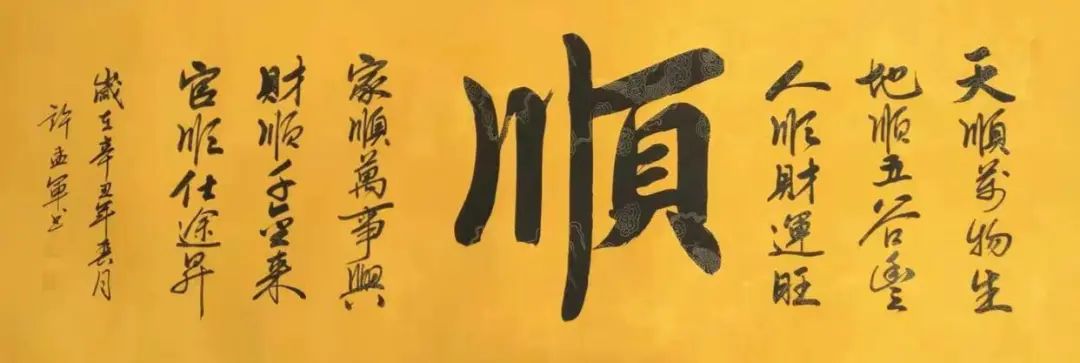 天順萬物生
地順五谷豐
人順財運旺
順
家順萬事興
財順千金来
官順仕途昇
歲在辛丑年春月
許孟軍书